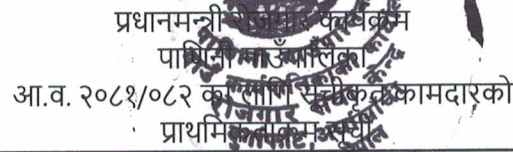 प्रधानमन्त्री रोजगार कार्यक्रम
पाणिनी गाउँपालिका
आ.व. २०८१/०८२ का लागि सूचीकृत कामदारको
प्राथमिकताक्रम सूची